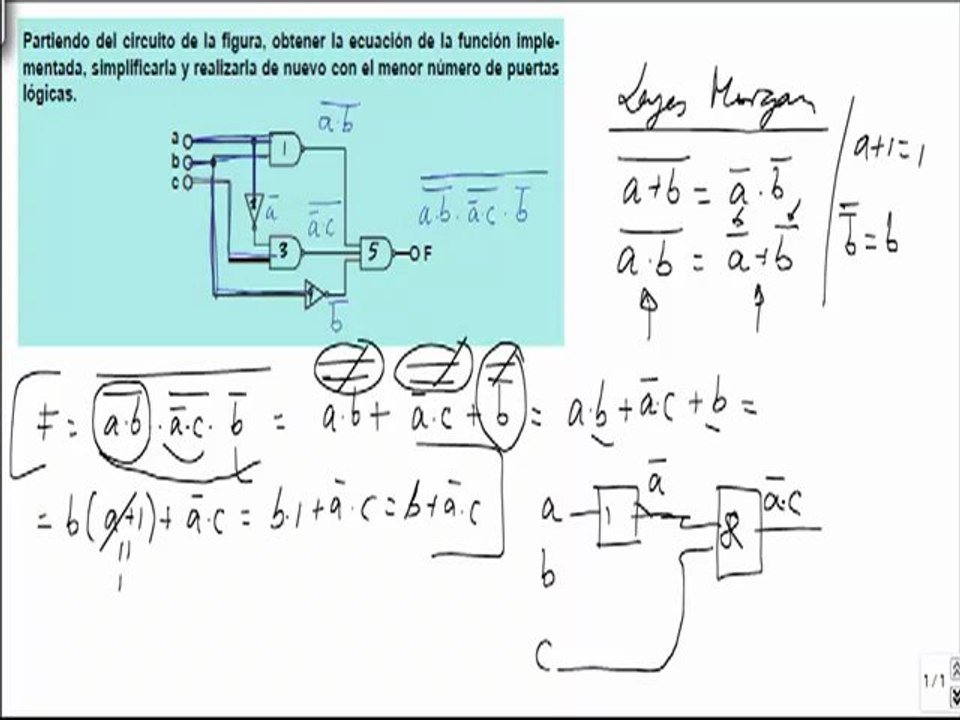 Partiendo del circuito de la figura, obtener la ecuación de la función imple-
mentada, simplificarla y realizarla de nuevo con el menor número de puertas
lógicas.
Leyes Morgan
a̅·̅b̅
a
b
c
1
a̅
a̅̅·̅c̅
3
5
F
b̅
a̅·̅b̅ · a̅̅·̅c̅ · b̅
a̅+̅b̅ = a̅ · b̅
a̅·̅b̅ = a̅ + b̅
a+1=1
b̿ = b
F = a·b · a̅·c · b̅ = a·b + a̅·c + b = a·b + a̅·c + b =
= b(a+1) + a̅·c = b·1 + a̅·c = b + a̅·c
11
1
a
1
a̅
&
a̅·c
b
c
1/1